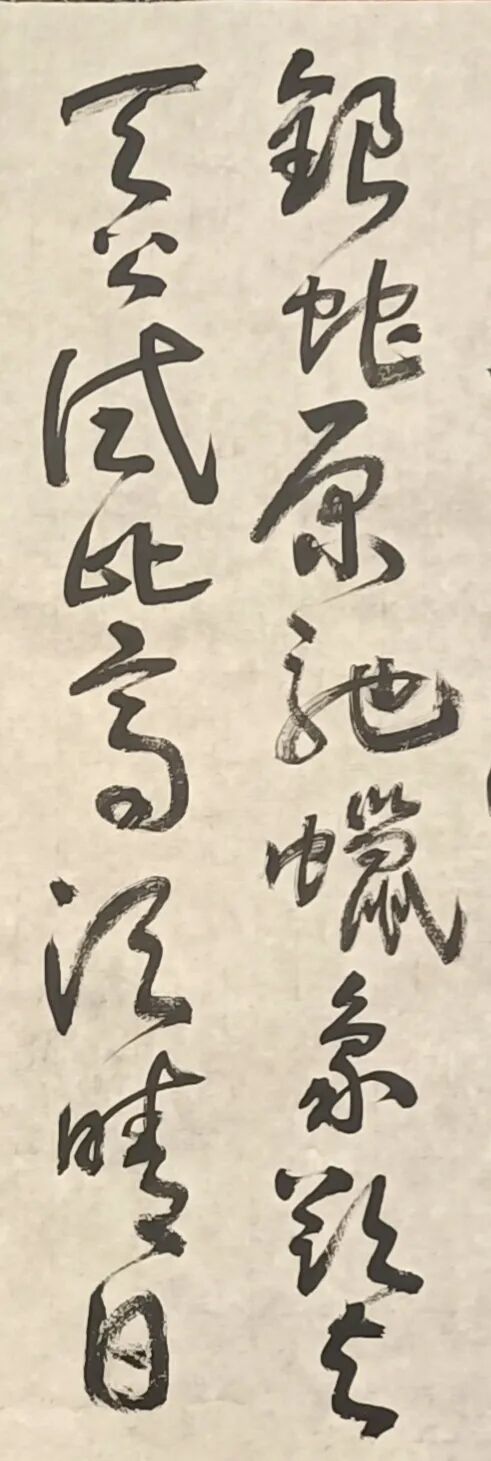 銀蛇原馳蠟象欲与
天公試比高須晴日